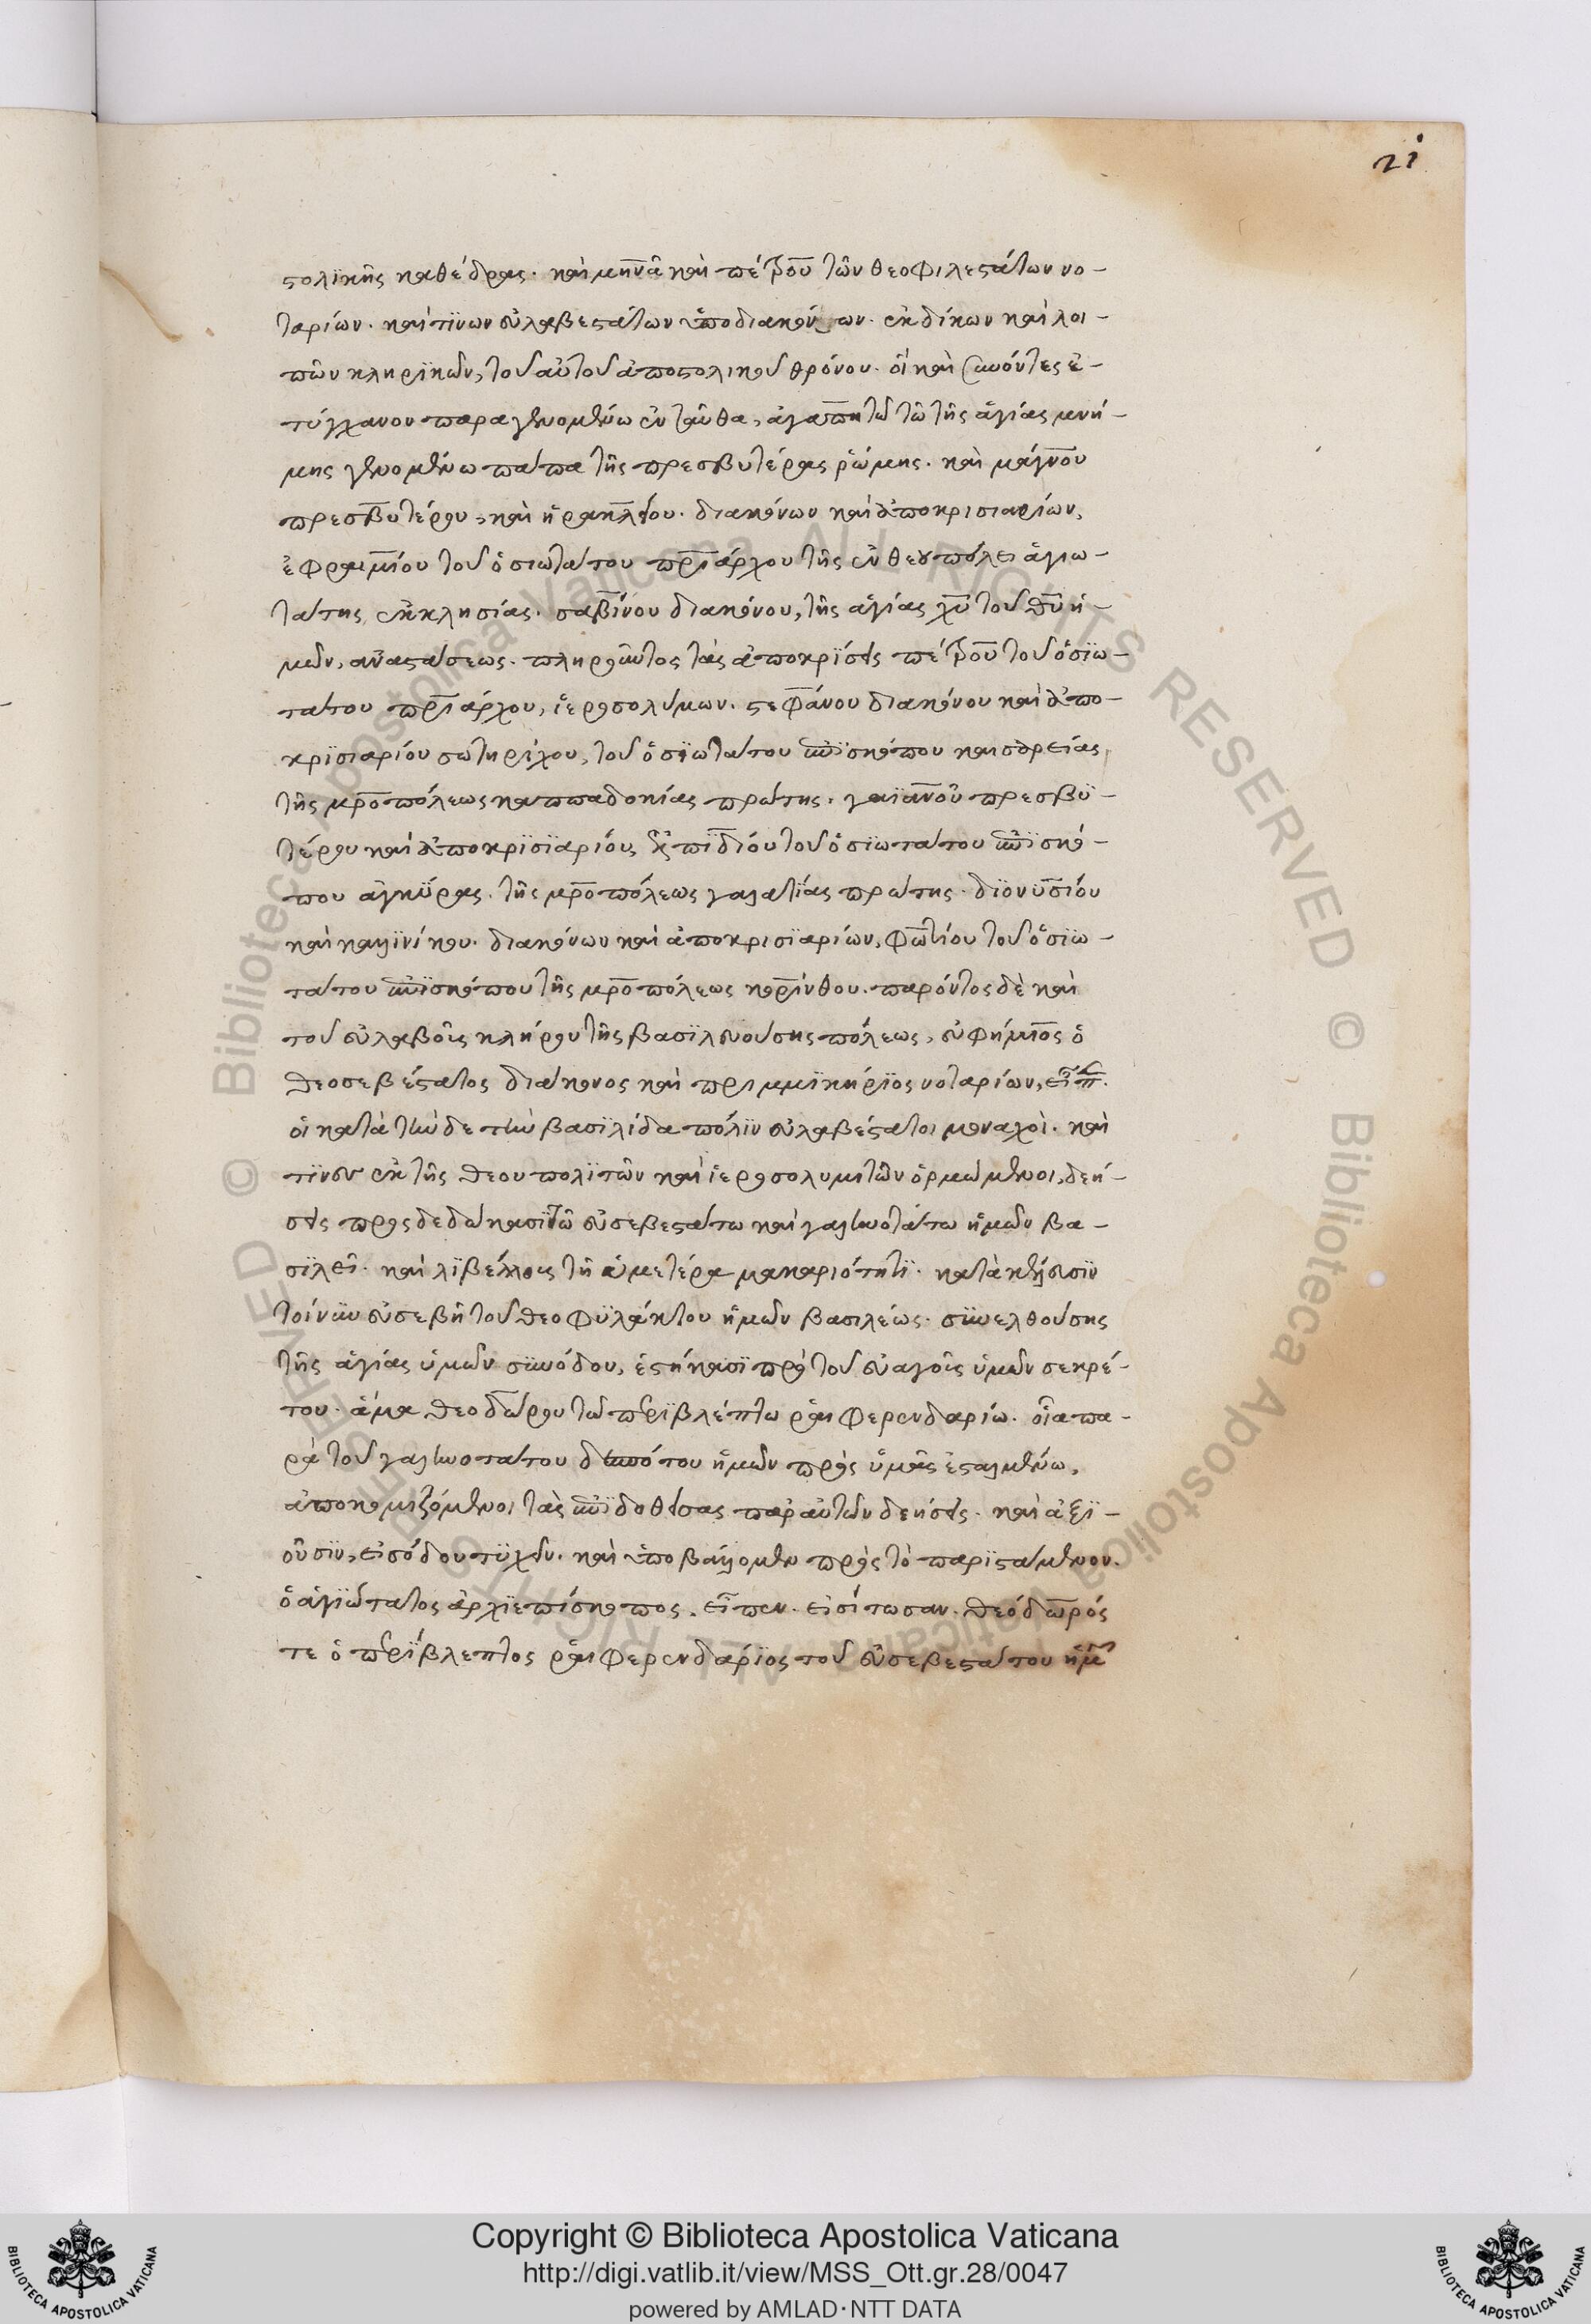 21
στολϊκῆς καθέδρας. καὶ μηνᾶ καὶ πέτρου τῶν θεοφιλεστάτων νο-
ταρίων. καὶ τϊνων εὐλαβεστάτων ὑποδιακόνων. ἐκδίκων καὶ λοι-
πῶν κληρϊκῶν, τοῦ αὐτοῦ ἀποστολικοῦ θρόνου. οἳ καὶ συνόντες ἐ-
τύγχανον παραγενομένω ἐνταῦθα, ἀγαπητῶ τῶ τῆς ἁγίας μνή-
μης γενομένω πάπα τῆς πρεσβυτέρας ῥώμης. καὶ μάγνου
πρεσβυτέρου, καὶ ἡρακλείου. διακόνων καὶ ἀποκρισιαρίων,
ἐφραιμίου τοῦ ὁσιωτάτου πριάρχου τῆς ἐν θεουπόλει ἁγιω-
τάτης ἐκκλησίας. σαβίνου διακόνου, τῆς ἁγίας χυ τοῦ θυ ἡ-
μῶν, ἀναστάσεως. πληροῦντος τὰς ἀποκρϊσεις πέτρου τοῦ ὁσϊω-
τάτου πριάρχου, ἱεροσολύμων. στεφάνου διακόνου καὶ ἀπο-
κρϊσιαρίου σωτηρίχου, τοῦ ὁσϊωτάτου ἐπϊσκόπου καισαρείας,
τῆς μροπόλεως καππαδοκίας πρώτης. γαϊανοῦ πρεσβϋ-
τέρου καὶ ἀποκρϊσϊαρίου, ἐλπϊδίου τοῦ ὁσϊωτάτου ἐπϊσκό-
που ἀγκϋρας. τῆς μροπόλεως γαλατϊας πρώτης. δϊονυσίου
καὶ καλλϊνίκου. διακόνων καὶ ἀποκρισϊαρίων, φωτίου τοῦ ὁσϊω-
τάτου ἐπϊσκόπου τῆς μροπόλεως κορίνθου. παρόντος δὲ καὶ
τοῦ εὐλαβοῦς κλήρου τῆς βασϊλευούσης πόλεως, εὐφήμιος ὁ
θεοσεβέστατος διάκονος καὶ πριμμϊκήρϊος νοταρίων, εἶπ.
οἱ κατὰ τήνδε τὴν βασϊλίδα πόλϊν εὐλαβέστατοι μοναχοὶ. καὶ
τϊνὲς ἐκ τῆς θεουπολϊτῶν καὶ ἱεροσολυμιτῶν ὁρμώμενοι, δεή-
σεις προσδεδώκασϊ τῶ εὐσεβεστάτω καὶ γαληνοτάτω ἡμῶν βα-
σϊλεῖ. καὶ λϊβέλλους τῆ ὑμετέρα μακαριότητϊ. κατὰ κέλευσϊν
τοίνυν εὐσεβῆ τοῦ θεοφϋλάκτου ἡμῶν βασιλέως. συνελθούσης
τῆς ἁγίας ὑμῶν συνόδου, ἑστήκασϊ πρὸ τοῦ εὐαγοῦς ὑμῶν σεκρέ-
του. ἅμα θεοδώρου τῶ πρϊβλέπτω ῥαιφερενδαρίω. οἷα πα-
ρὰ τοῦ γαληνοτάτου δεσπότου ἡμῶν πρὸς ὑμᾶς ἐσταλμένω,
ἀποκομιζόμενοι τὰς ἐπϊδοθείσας παρ' αὐτῶν δεήσεις. καὶ ἀξϊ-
οῦσϊν, εἰσόδου τϋχεῖν. καὶ ὑποβάλλομεν πρὸς τὸ παρϊστάμενον.
ὁ ἁγϊώτατος ἀρχϊεπίσκοπος. εἶπεν. εἰσίτωσαν. θεόδωρός
τε ὁ πρϊβλεπτος ῥαιφερενδάρϊος τοῦ εὐσεβεστάτου ἡμ
Copyright © Biblioteca Apostolica Vaticana
http://digi.vatlib.it/view/MSS_Ott.gr.28/0047
powered by AMLAD·NTT DATA